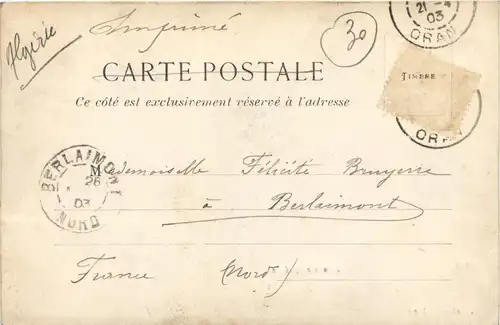 Algérie
Imprimé
30
21
03
ORAN
CARTE POSTALE
TIMBRE
Ce côté est exclusivement réservé à l'adresse
ORAN
BERLAIMONT
26
03
NORD
Mademoiselle Félicité Bruyerre
à Berlaimont
France (Nord)